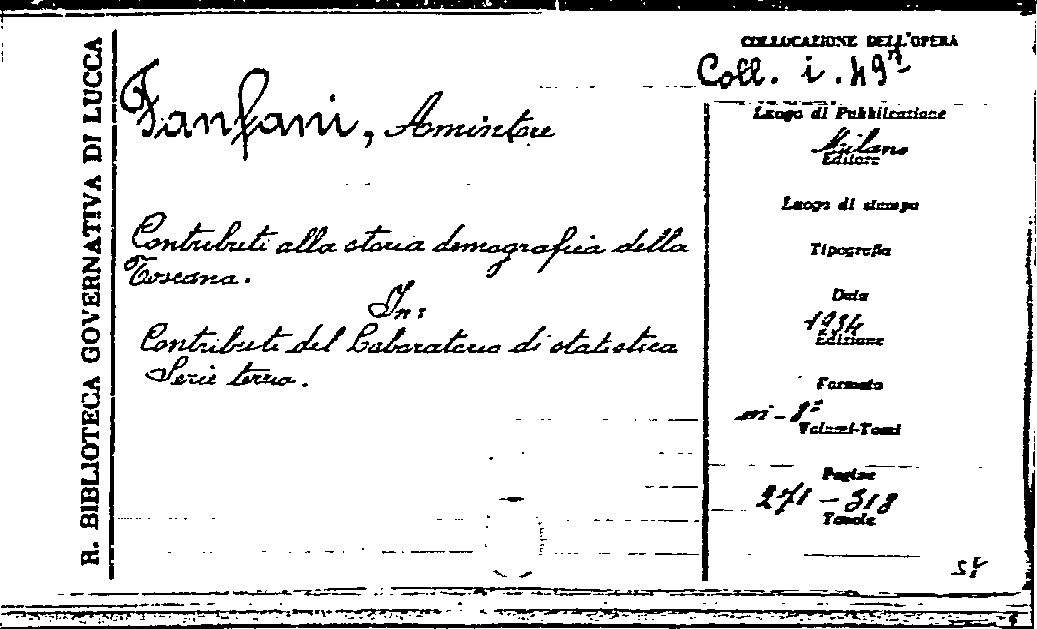 R. BIBLIOTECA GOVERNATIVA DI LUCCA
COLLOCAZIONE DELL'OPERA
Coll. i. 49
Fanfani, Amintore
Contributi alla storia demografica della
Toscana.
In:
Contributi del Laboratorio di statistica
Serie terza.
Luogo di Pubblicazione
Milano
Editore
Luogo di stampa
Tipografia
Data
1934
Edizione
Formato
in-8°
Volumi-Tomi
Pagine
271-318
Tavole